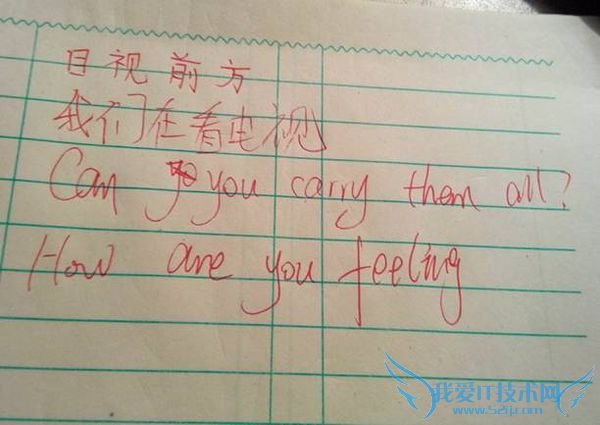 目视前方
我们在看电视
Can you carry them all?
How are you feeling
我爱IT技术网
www.52ij.com